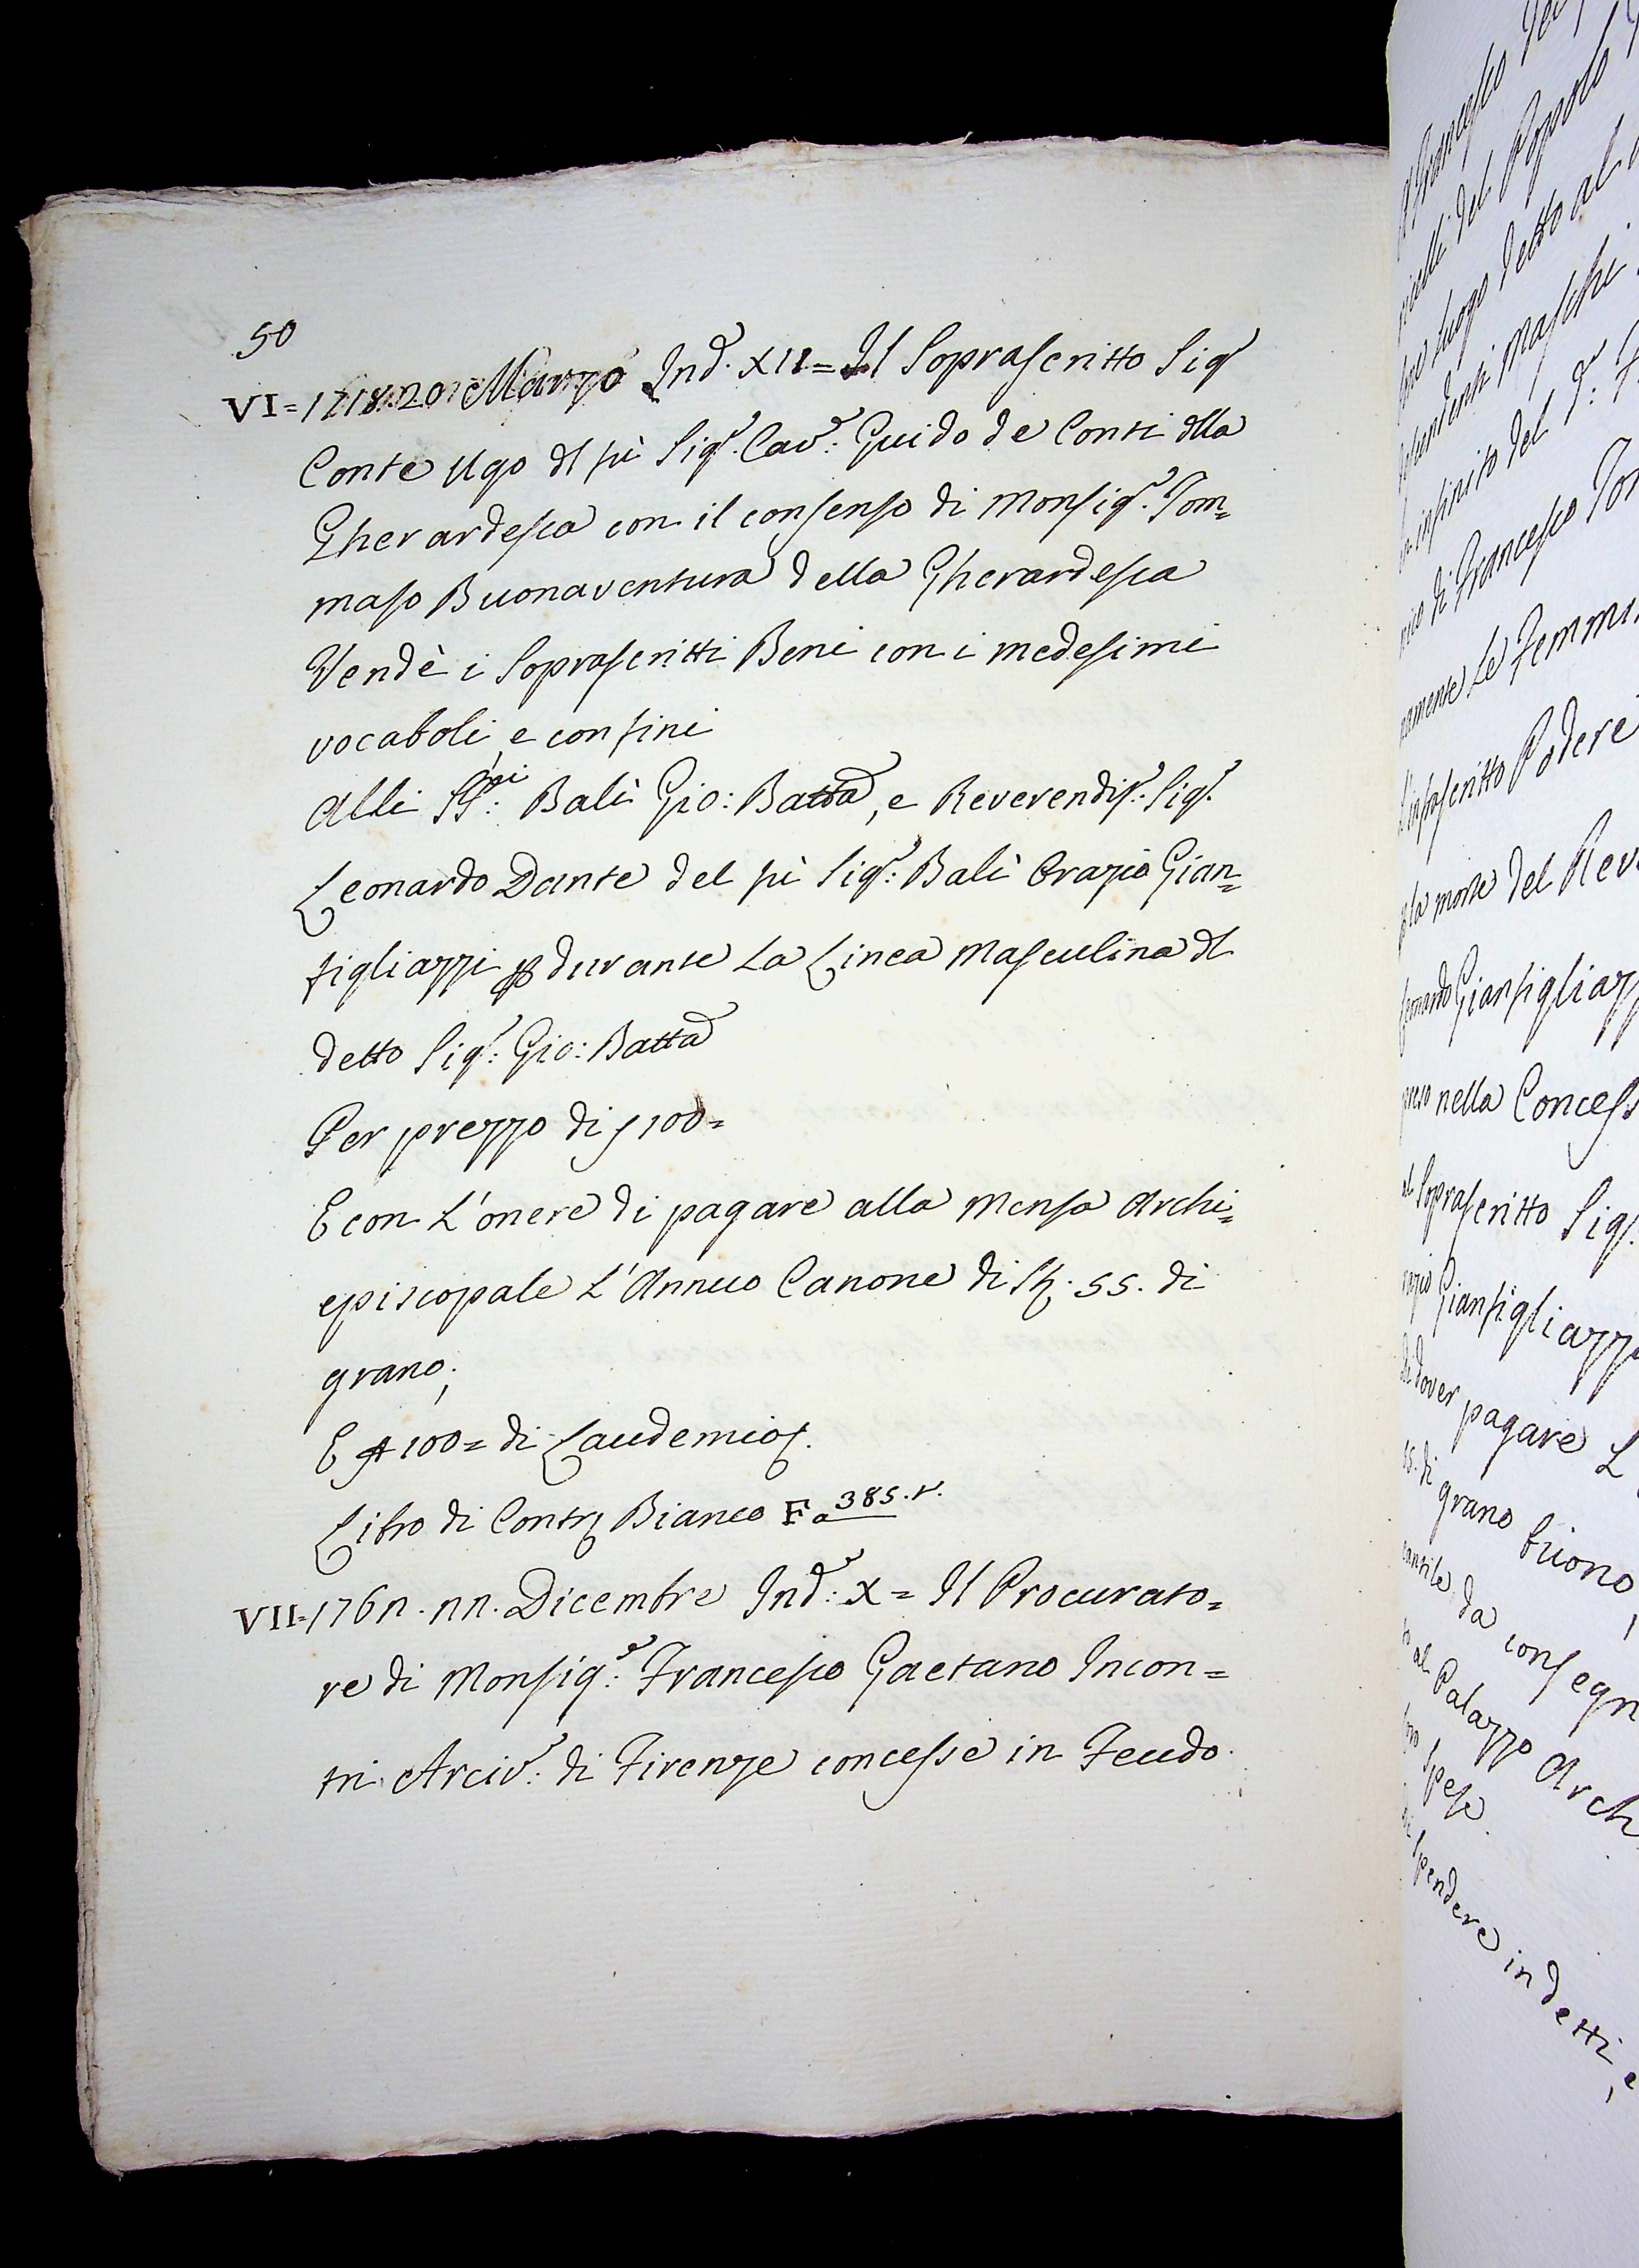 50
VI = 1718. 20. Marzo Ind.e XII = Il Soprascritto Sig.r
Conte Ugo dl fù Sig.r Cav.e: Guido de Conti dlla
Gherardesca con il consenso di Monsig.r Tom=
maso Buonaventura della Gherardesca
Vendè i Soprascritti Beni con i medesimi
vocaboli, e confini
Alli SS.ri: Balì Gio: Batta, e Reverendis.: Sig.r
Leonardo Dante del fù Sig.r: Balì Orazio Gian=
figliazzi p durante La Linea Masculina dl
detto Sig.r: Gio: Batta
Per prezzo di ƒ 100=
E con L'onere di pagare alla Mensa Archi=
episcopale L'Annuo Canone di St. 55. di
grano;
E ƒ 100= di Laudemio.
Libro di Contr. Bianco F a 385. r.
VII = 1762. 22. Dicembre Ind.e: X = Il Procurato=
re di Monsig.r: Francesco Gaetano Incon=
tri Arciv.o: di Firenze concesse in Feudo
Francesco
del Popolo
luogo detto al
descendenti Maschi
in infinito del d.o:
di Francesco
Le Femmi
infrascritto Podere
p la morte del Rev
Gianfigliazz
nella Concess
Soprascritto Sig.
Gianfigliazz
di dover pagare L
55. di grano buono,
da consegn
al Palazzo Arch
spese.
spendere in detti,